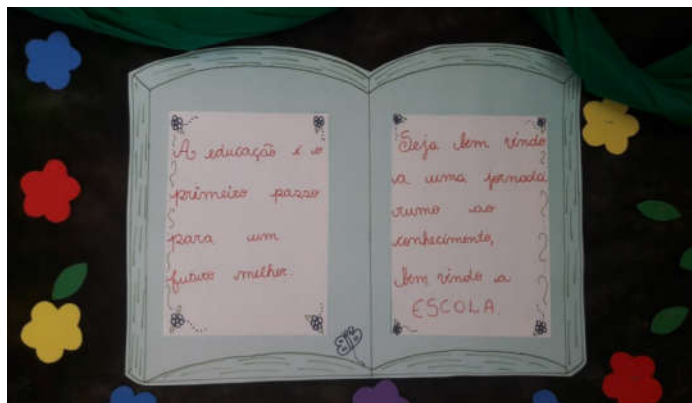 A educação é o
primeiro passo
para um
futuro melhor.
Seja bem vindo
a uma jornada
rumo ao
conhecimento,
bem vindo a
ESCOLA.